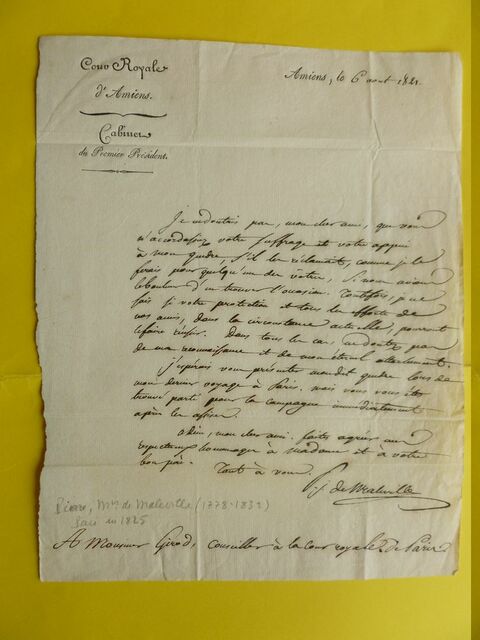 Cour Royale
d'Amiens.
Cabinet
du Premier Président.
Amiens, le 6 aout 1821
Je ne doutais pas, mon cher ami, que vous
n'accordassiez votre suffrage et votre appui
à mon gendre, s'il les réclamait, comme je le
ferais pour quelqu'un des vôtres, si nous avions
le bonheur d'en trouver l'occasion. Toutefois, je ne
sais si votre protection et tous les efforts de
vos amis, dans la circonstance actuelle, pourront
le faire réussir. Dans tous les cas, ne doutez pas
de ma reconnaissance et de mon éternel attachement.
J'espérais vous présenter mondit gendre lors de
mon dernier voyage à Paris, mais vous vous étiez
trouvé parti pour la campagne immédiatement
après les assises.
adieu, mon cher ami. faites agréer mes
respectueux hommages à madame et à votre
bon
Tout à vous.
de Maleville
Pierre, Mis de Maleville (1778-1832)
Pair en 1825
A Monsieur Girod, Conseiller à la Cour royale de Paris